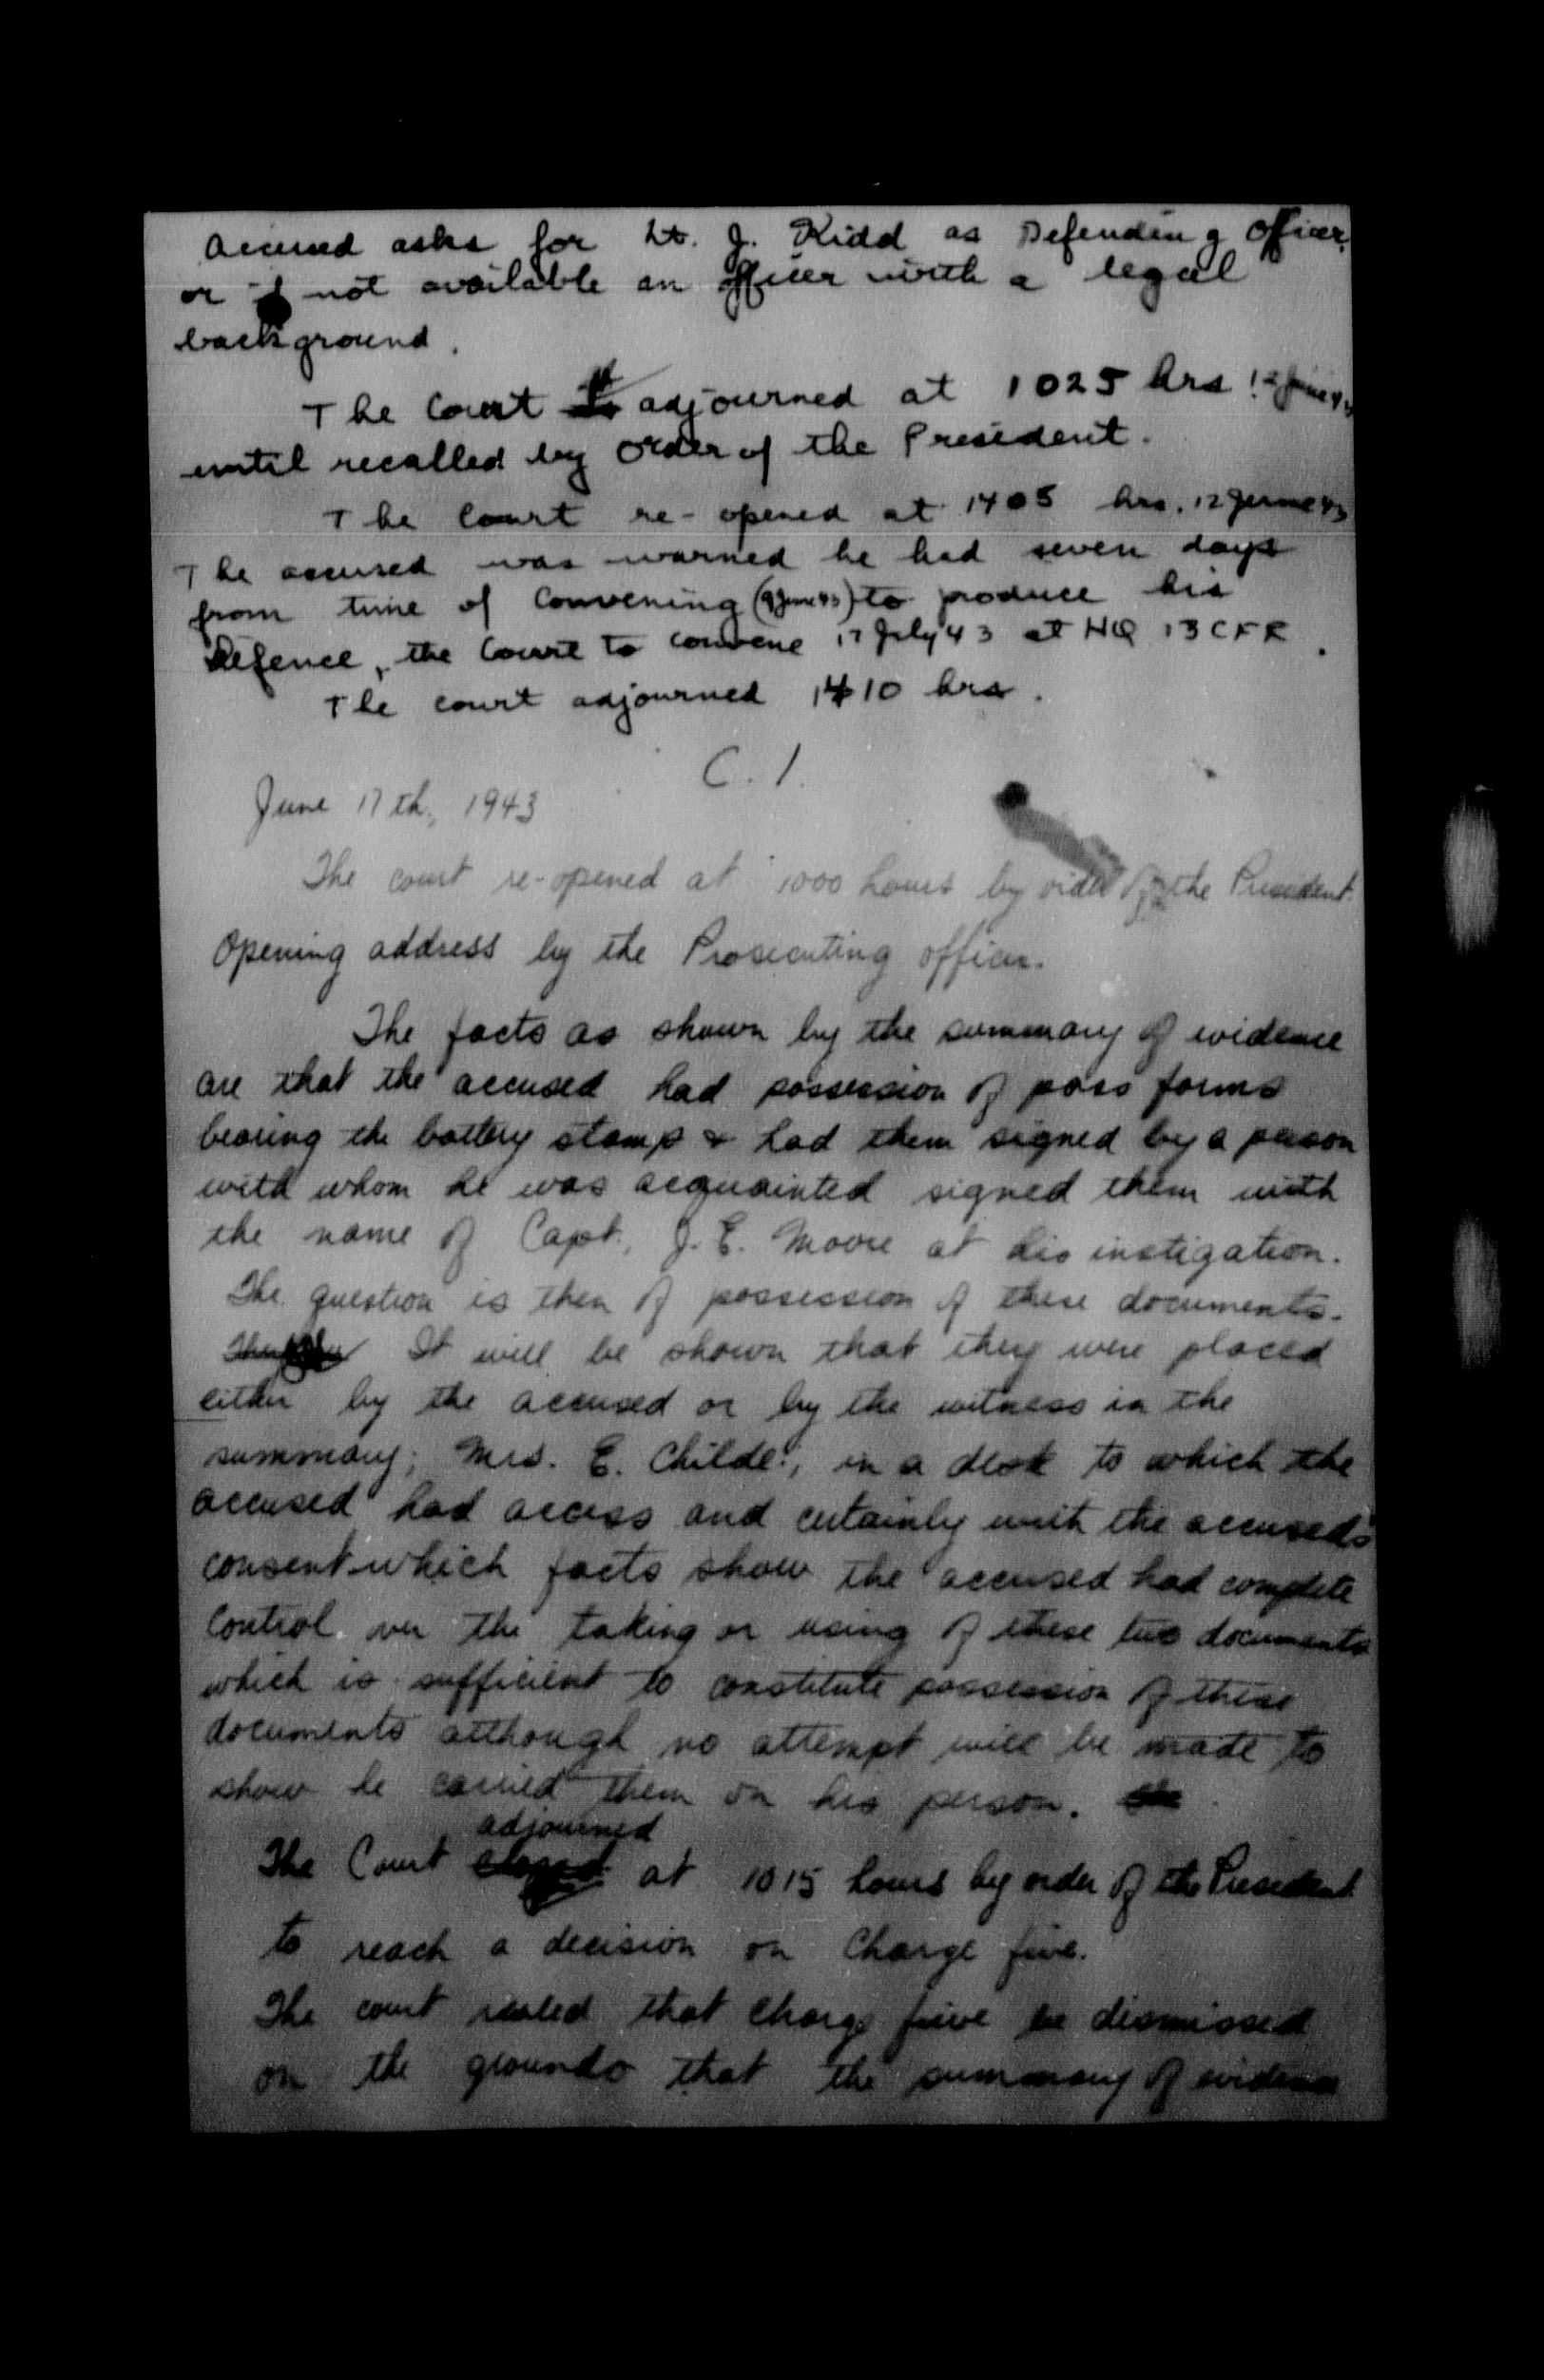 Accused asks for Lt. J. Kidd as Defending Officer,
or if not available an officer with a legal
background.
The Court adjourned at 1025 hrs 12 June 43
until recalled by order of the President.
The Court re-opened at 1405 hrs. 12 June 43
The accused was warned he had seven days
from time of Convening (9 June 43) to produce his
Defence, the Court to convene 17 July 43 at HQ 13 CFR.
The court adjourned 1410 hrs.
C. 1.
June 17th, 1943
The court re-opened at 1000 hours by order of the President.
Opening address by the Prosecuting officer.
The facts as shown by the summary of evidence
are that the accused had possession of pass forms
bearing the battery stamp & had them signed by a person
with whom he was acquainted signed them with
the name of Capt. J. E. Moore at his instigation.
The question is then of possession of these documents.
It will be shown that they were placed
either by the accused or by the witness in the
summary, Mrs. E. Childe, in a desk to which the
accused had access and certainly with the accused's
consent which facts show the accused had complete
control over the taking or using of these two documents
which is sufficient to constitute possession of these
documents although no attempt will be made to
show he carried them on his person.
adjourned
The Court closed at 1015 hours by order of the President
to reach a decision on Charge five.
The court ruled that Charge five be dismissed
on the grounds that the summary of evidence